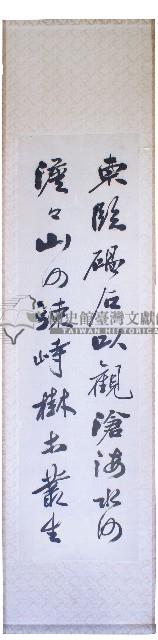 東臨碣石以觀滄海水何
澹々山の竦峙樹木叢生
史館臺灣文獻館
TAIWAN HISTORICA